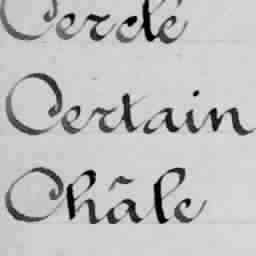 Cerclé
Certain
Châle